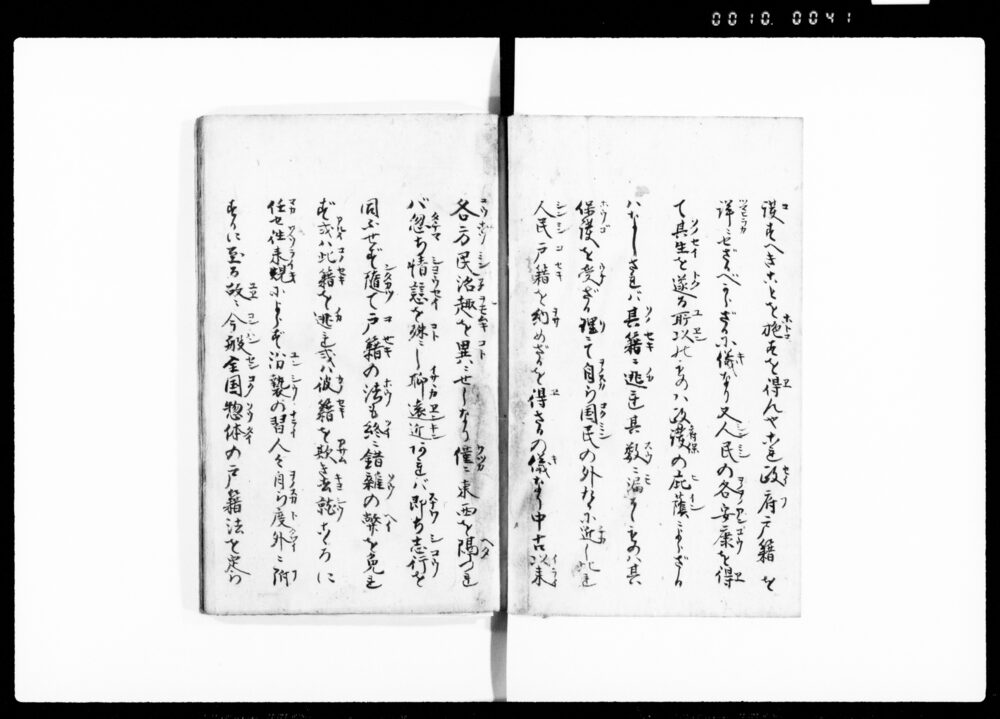 0010.0041
護すへきことを施すを得んや是政府戸籍を
詳にせざるべからざる儀なり又人民の各安康を得
て其生を遂る所以のものハ政府保護の庇蔭によらざる
ハなしされバ其籍を逃れ其数に漏るゝものハ其
保護を受ざる理にて自ら国民の外たるに近し此れ
人民戸籍を納めざるを得さるの儀なり中古以来
各方民治趣を異にせしより僅に東西を隔つれ
バ忽ち情態を殊にし聊遠近あれバ即ち志行を
同ふせず随て戸籍の法も終に錯雑の弊を免れ
ず或ハ此籍を逃れ或ハ彼籍を欺き去就心に
任せ往来規によらず沿襲の習人々自ら度外に附
するに至る故に今般全国惣体の戸籍法を定め